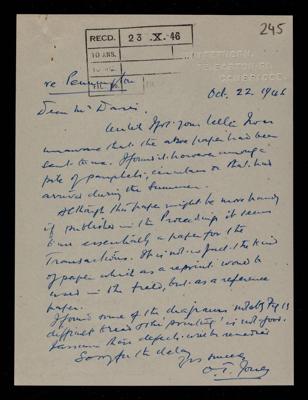 245
RECD. 23 .X. 46
TO ANS.
Oct. 22 1946
re Pennington
Dear Mr Davies
Until I got your letter I was
unaware that the above paper had been
sent to me. I found it however among a
pile of pamphlets, circulars etc that had
arrived during the Summer.
Although this paper might be more handy
if published in the Proceedings it seems
to me essentially a paper for the
Transactions. It is not in fact the kind
of paper which as a reprint would be
used in the field, but as a reference
paper.
I found some of the diagrams notably Fig 13
difficult to read & the 'printing' is not good.
I assume these defects will be remedied
Sorry for the delay
Yrs sincerely
O. T. Jones